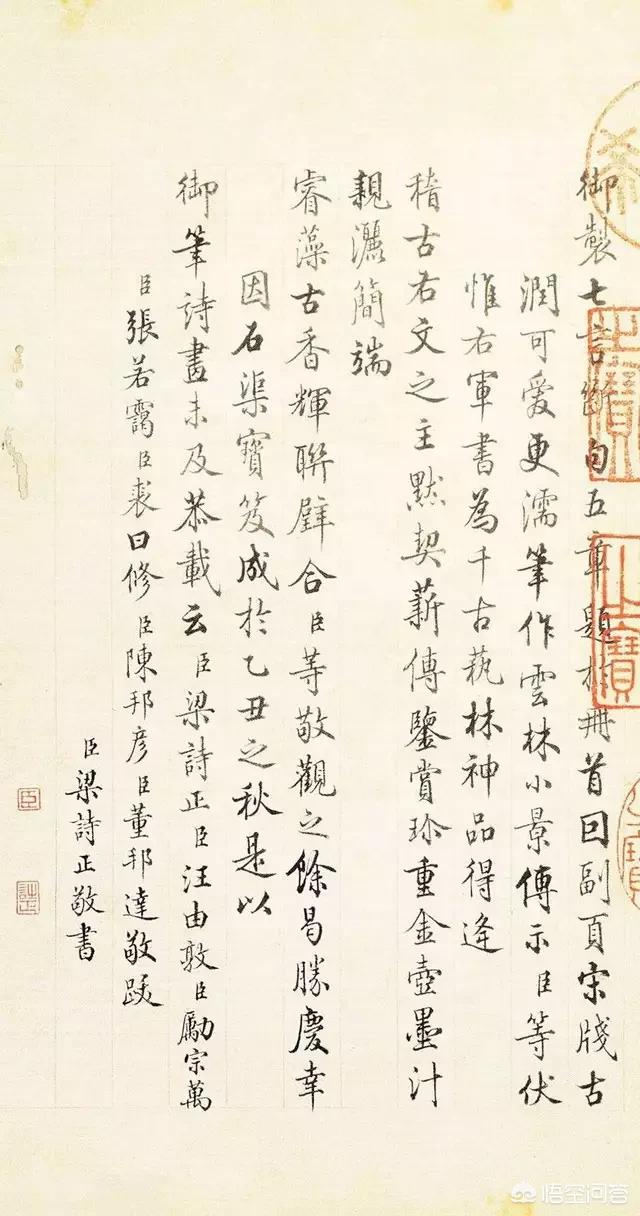 御製七言斷句五章題於冊首回副頁宋牋古
潤可愛更濡筆作雲林小景傳示臣等伏
惟右軍書為千古藝林神品得逢
稽古右文之主默契薪傳鑒賞珍重金壺墨汁
親灑簡端
睿藻古香輝聯璧合臣等敬觀之餘曷勝慶幸
因石渠寶笈成於乙丑之秋是以
御筆詩畫未及恭載云臣梁詩正臣汪由敦臣勵宗萬
臣張若靄臣裘曰修臣陳邦彥臣董邦達敬跋
臣梁詩正敬書
臣
詩正
之寶
悟空问答